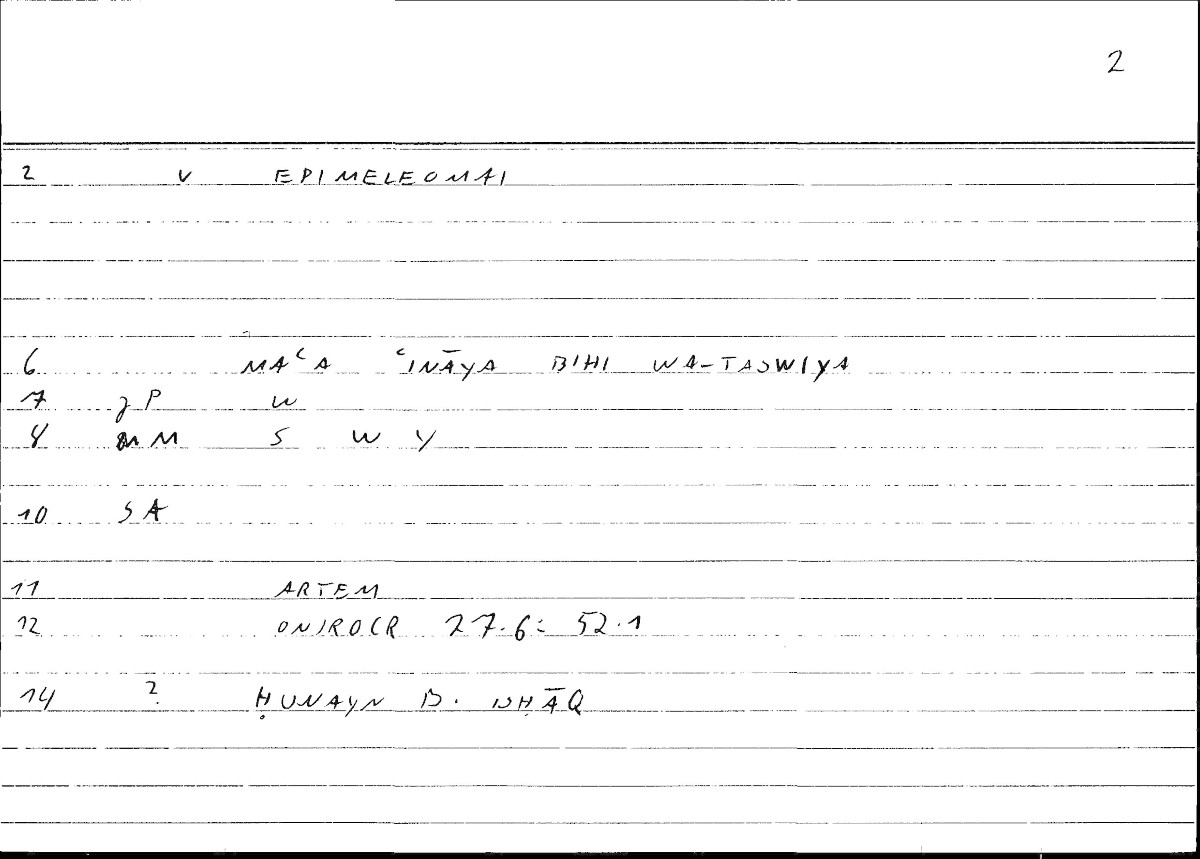 2
2 V EPIMELEOMAI
6 MAʿA ʿINĀYA BIHI WA-TASWIYA
7 JP W
8 MM S W Y
10 SA
11 ARTEM
12 ONIROCR 27.6: 52.1
14 ? ḤUNAYN B. ISḤĀQ